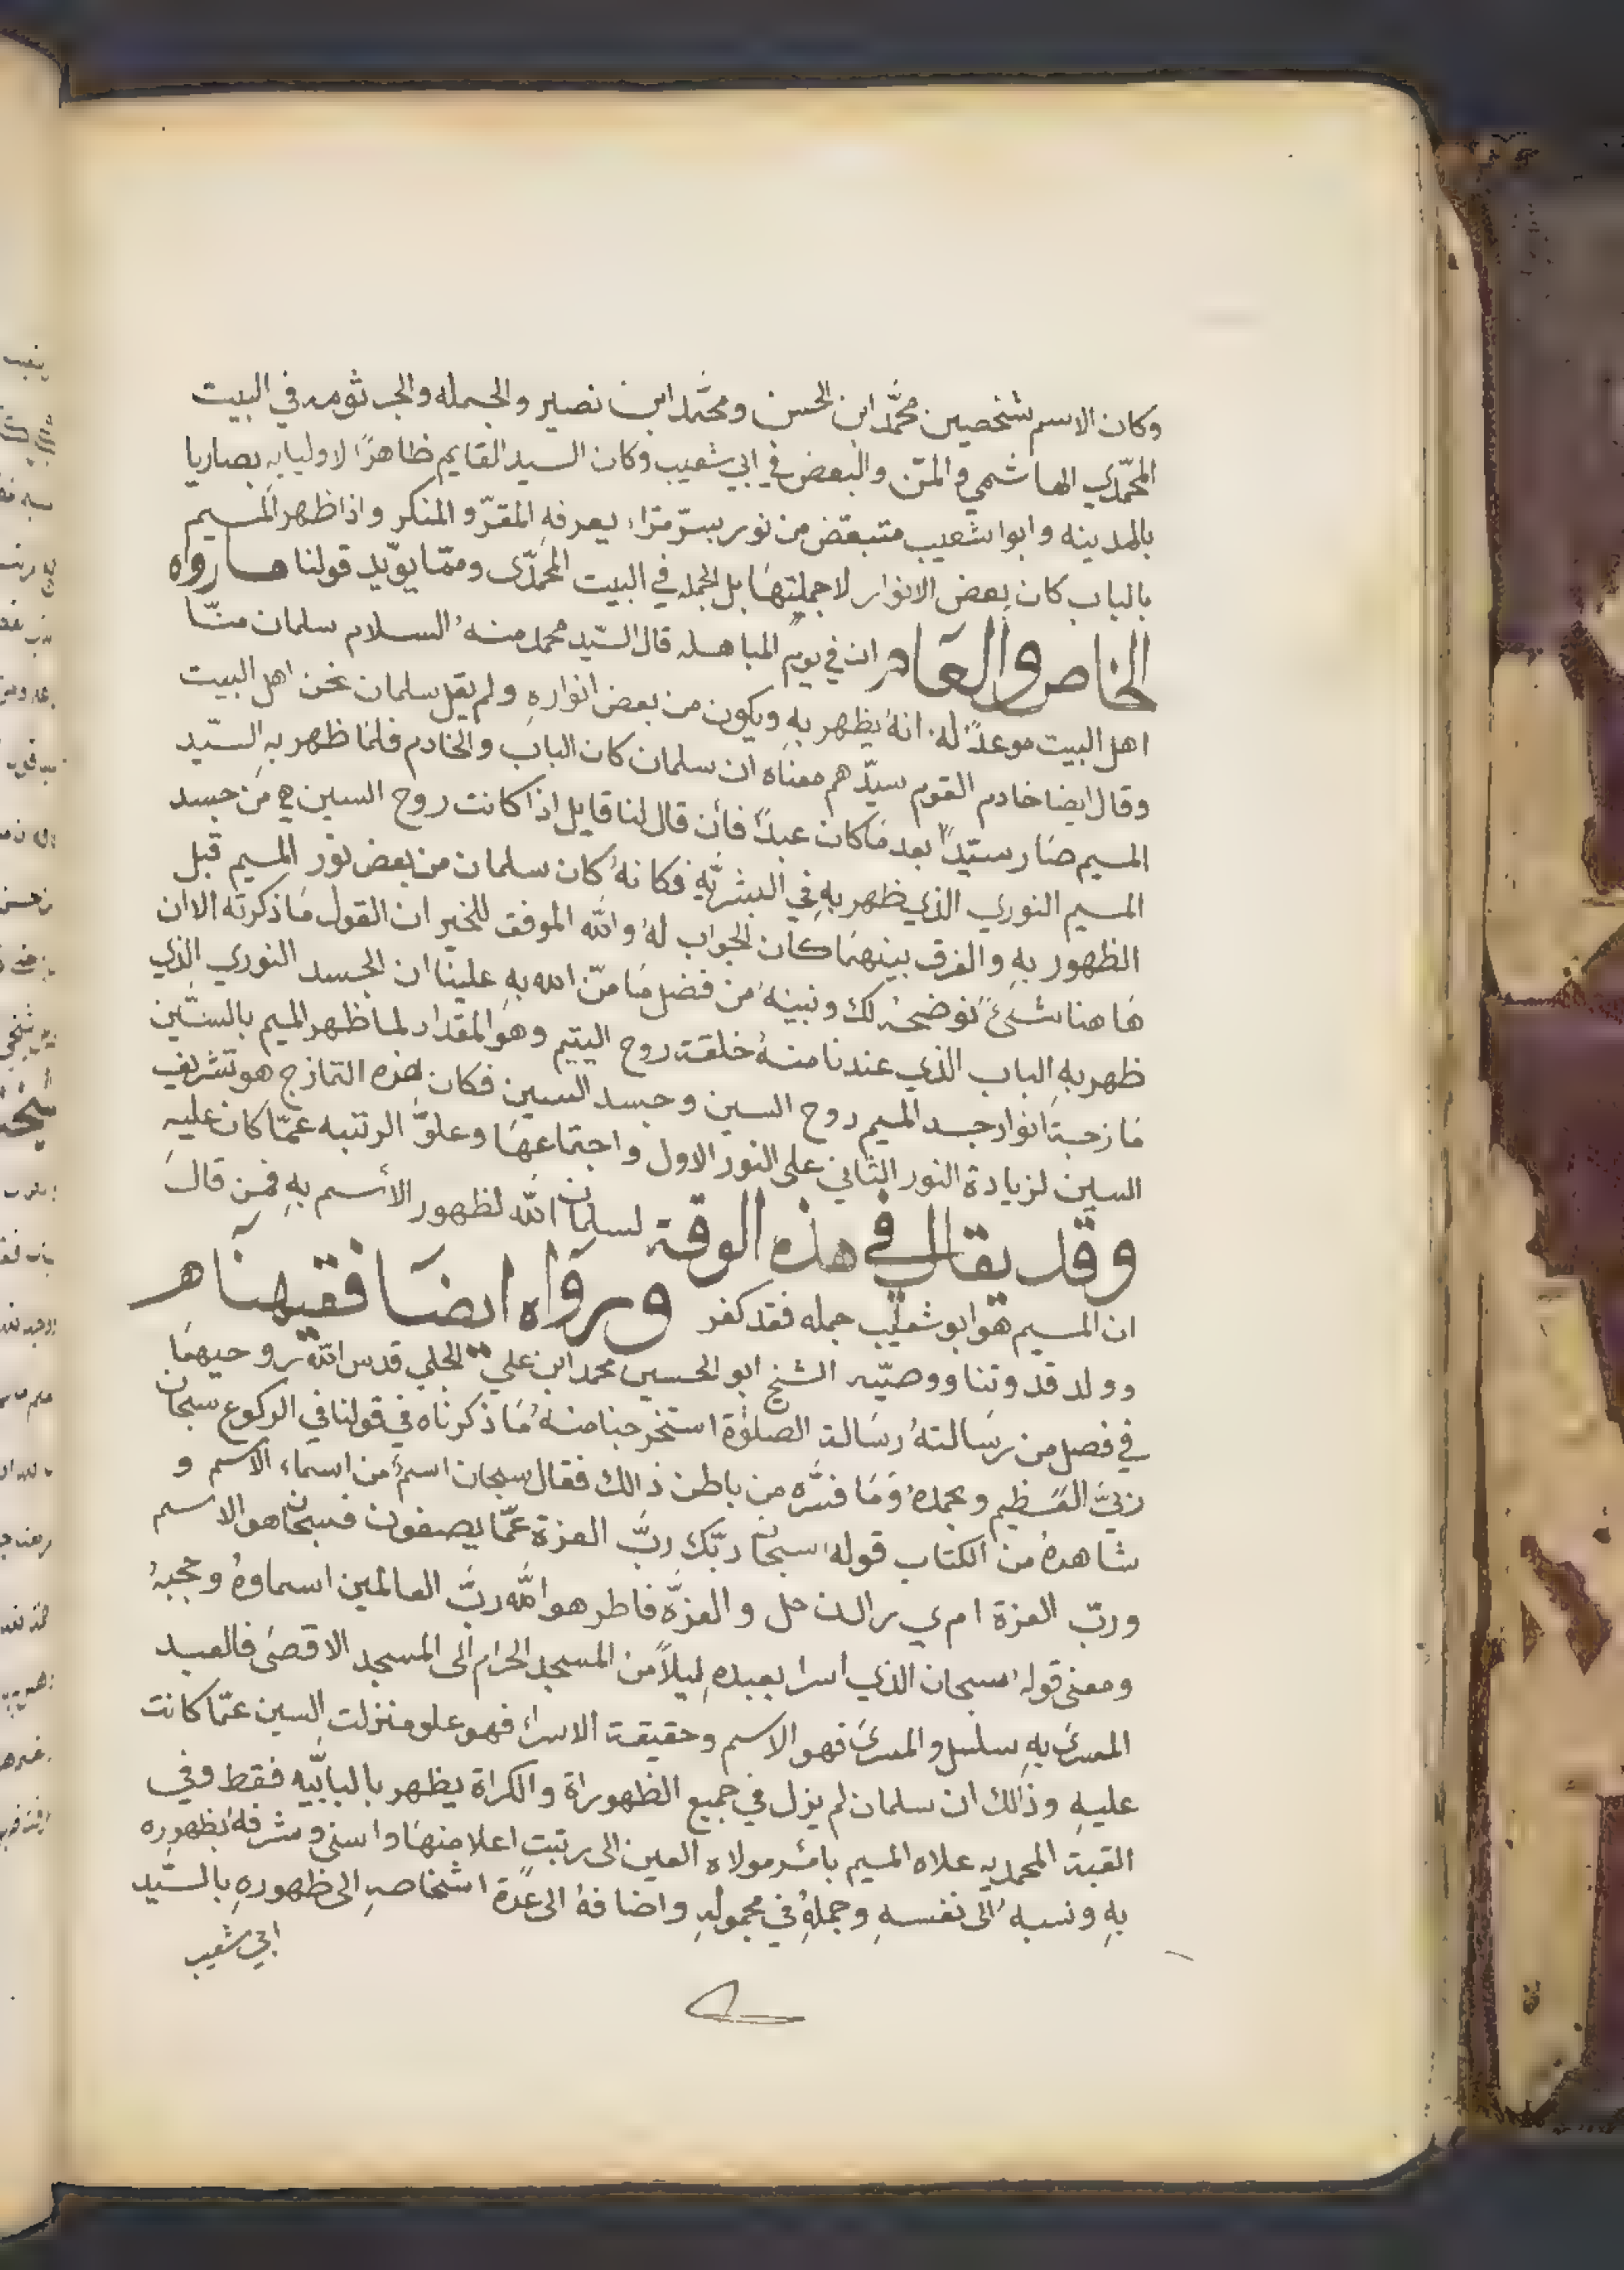 وكان الاسم شخصين محمَّد ابن الحسن ومحمَّد ابن نصير والجمله والجرثومه في البيت
المحمّدي الهاشمي والمنّ والبعض في ابي شعيب وكان السيد القايم ظاهرًا لاوليايهِ بصاريا
بالمدينه وابوا شعيب متبعّض من نوره بسرّ مرّا، يعرفه المقرّ والمنكر واذا ظهر الميم
بالباب كان بعض الانوار لا جملتهَا بل الجمله في البيت المحمدّى وممّا يوّيد قولنا مارواه
الخاص والعام ان في يوم المباهله قال السّيد محمد منهُ السلام سلمان منّا
اهل البيت موعدً لهُ انهُ يظهر بهِ ويكون من بعض انوارهِ ولم يقل سلمان نحن اهل البيت
وقال ايضا خادم القوم سيدّهم معناه ان سلمان كان الباب والخادم فلمّا ظهر بهِ السّيد
الميم صَار سيّدًا بعد مَا كان عبدًا فأن قال لنا قايل اذا كانت روح السين هي من جسد
الميم النوري الذي ظهر بهِ في البشريّه فكانهُ كان سلمان من بعض نور الميم قبل
الظهور بهِ والفرق بينهمَا كان الجواب لهُ والله الموفق للخير ان القول مَا ذكرته الا ان
هَا هنا شئً نوضحهُ لك ونبينهُ من فضل مَا منّ الله بهِ علينَا ان الجسد النوري الذي
ظهر بهِ الباب الذي عندنا منهُ خلقت روح اليتيم وهو المقداد لما ظهر الميم بالسّين
مَازجة انوار جسد الميم روح السين وجسد السين فكان هذه التمازج هو تشريف
السين لزيادة النور الثاني على النور الاول واجتماعهَا وعلوَّ الرتبه عمّا كان عليهِ
وقد يقال في هذه الوقة لسلمان الله لظهور الأسم بهِ فمن قال
ان الميم هو ابو شعيب جمله فقد كفر ورواه ايضًا فقيهنا هر
وولد قدوتنا ووصيّه الشيخ ابو الحسين محمد ابن علي الجلي قدس الله روحيهمَا
في فصل من رسَالتهُ رسَالة الصلوٰة استخرجنا منهُ مَا ذكرناه في قولنا في الركوع سبحان
ربيَّ العَظيم وبحمدهُ وَمَا فسَّره من باطن ذالك فقال سبحان اسمٌ من اسماء الاسم و
شاهدهُ من الكتاب قولهُ سبحان ربّك ربَّ العزة عمّا يصفون فسبحان هو الاسم
وربّ العزة ا م ي ر ا ل ن ح ل والعزَّه فاطر هو الله ربَّ العالمين اسماوهُ وحجبهُ
ومعنى قولهُ سبحان الذي اسرا بعبدهِ ليلاً من المسجد الحرام الى المسجد الاقصىَ فالعبد
المسرىَ بهِ سلسل والمسرىَ فهو الاسم وحقيقة الاسراء فهو علو منزلت السين عمّا كانت
عليهِ وذالك ان سلمان لم يزل في جميع الظهوراة والكراة يظهر بالبابّيه فقط وفي
القبة المحمديه علاه الميم بأمر مولاه العين الى رتبت اعلا منهَا واسنى وشرفهُ بظهوره
بهِ ونسبهُ الى نفسهِ وجملهُ في محمولهِ واضافهُ الى عدَّة اشخاصهِ الى ظهورهِ بالسَّيد
ابي شعيب